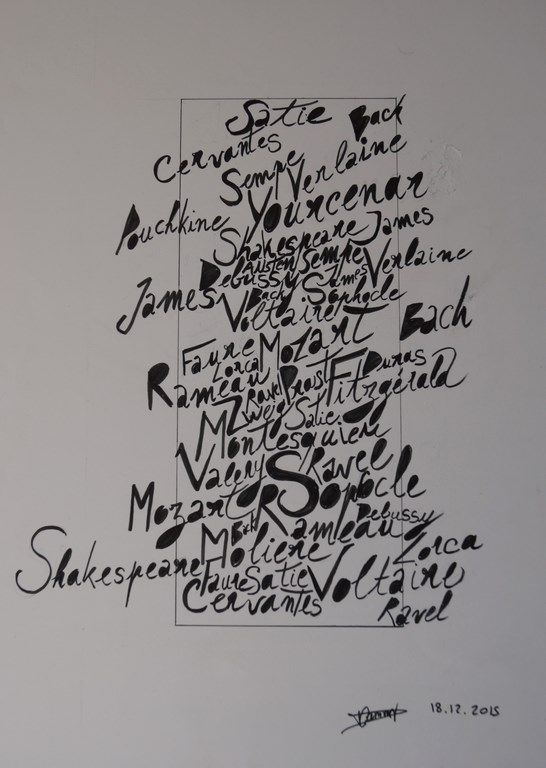 Satie Back
Cervantes
Sempe Verlaine
Pouchkine Yourcenar
Shakespeare James
Austen Sempe Verlaine
Debussy James
James Bach Sophocle
Voltaire Bach
Faure Mozart
Lorca Duras
Rameau Ravel Proust Fitzgérald
Zweig Satie
Montesquieu
Valery Ravel
Mozart Sophocle
Bach Rameau Debussy
Shakespeare Molière Lorca
Faure Satie Voltaire
Cervantes Ravel
18.12.2015